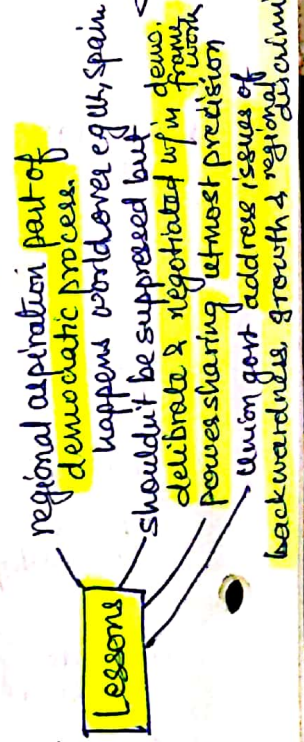 Lessons
regional aspiration part of
democratic process.
happens world over eg UK, Spain
shouldn't be suppressed but
delibrate & negotiated w/in demo.
frame
work
power sharing utmost precision
Union govt address issues of
backwardness growth & regional
discrimi